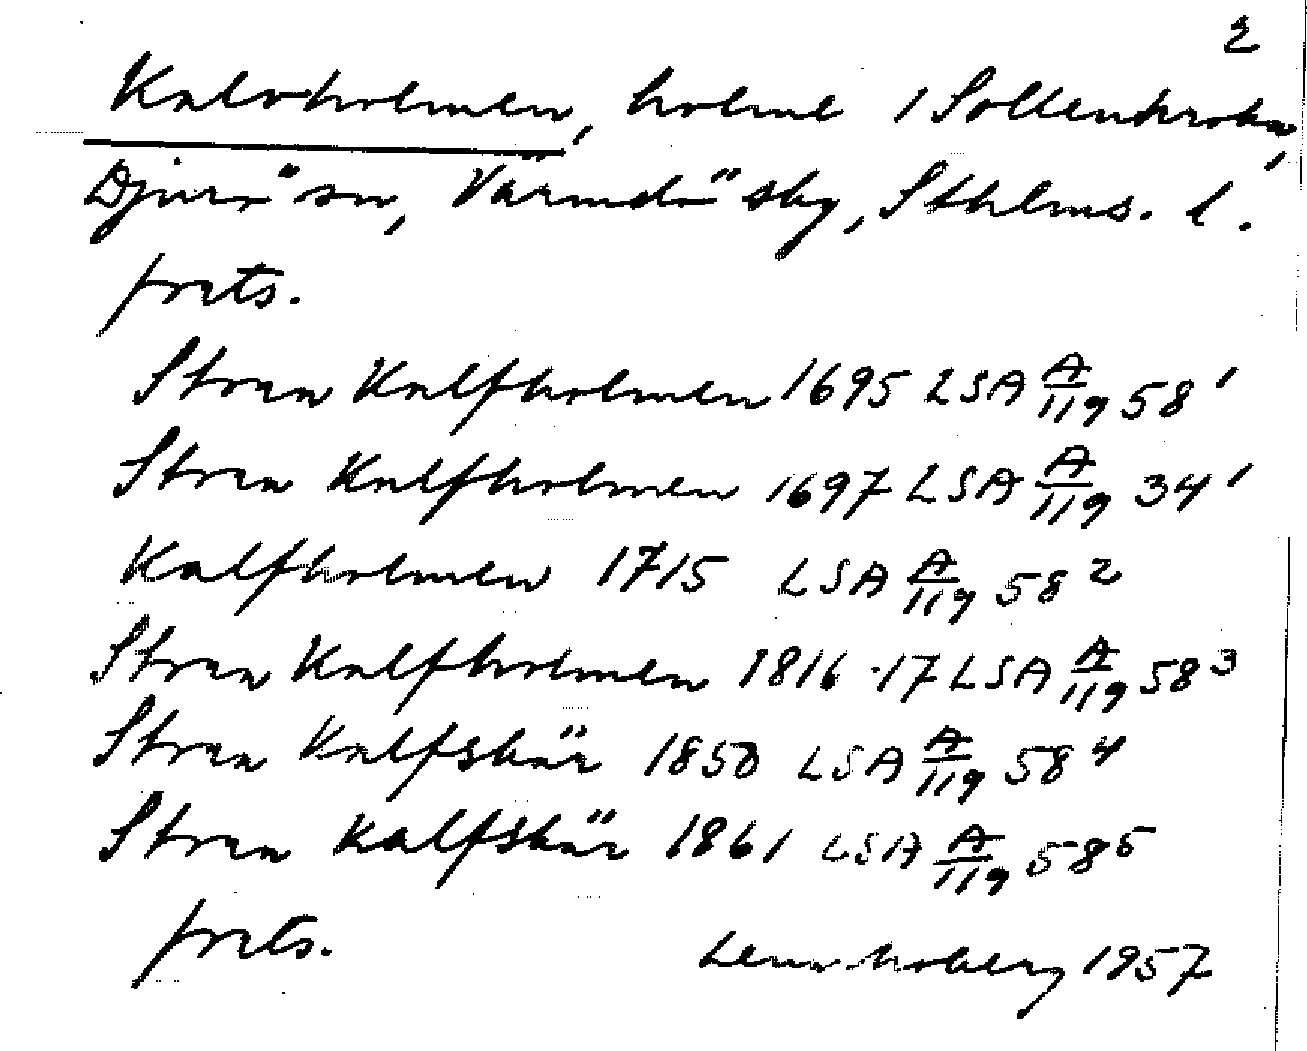 2
Kalvholmen, holme i Sollenkroka,
Djurö sn, Värmdö sky, Sthlms. l.
forts.
Stora Kalfholmen 1695 LSA A/119 58¹
Stora Kalfholmen 1697 LSA A/119 34¹
Kalfholmen 1715 LSA A/119 58²
Stora Kalfholmen 1816-17 LSA A/119 58³
Stora Kalfskär 1850 LSA A/119 58⁴
Stora Kalfskär 1861 LSA A/119 58⁵
forts.
1957